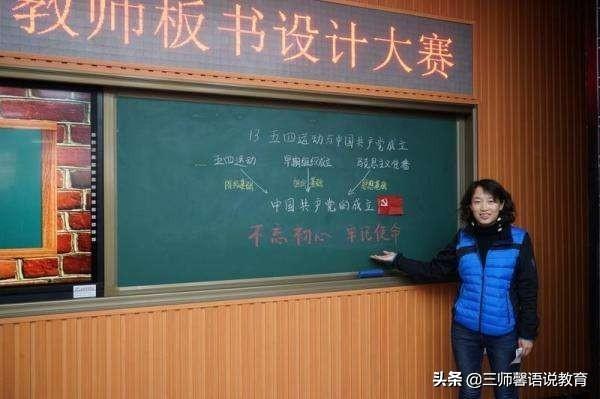 教师板书设计大赛
13 五四运动与中国共产党成立
五四运动 早期组织成立 马克思主义传播
阶级基础 组织基础 思想基础
中国共产党的成立
不忘初心 牢记使命
头条 @三师馨语说教育